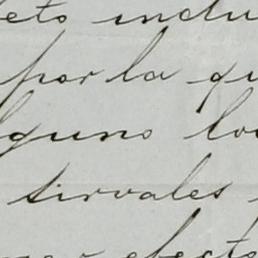 eto inclu
por la qu
lguno lo
sirvales
efecto